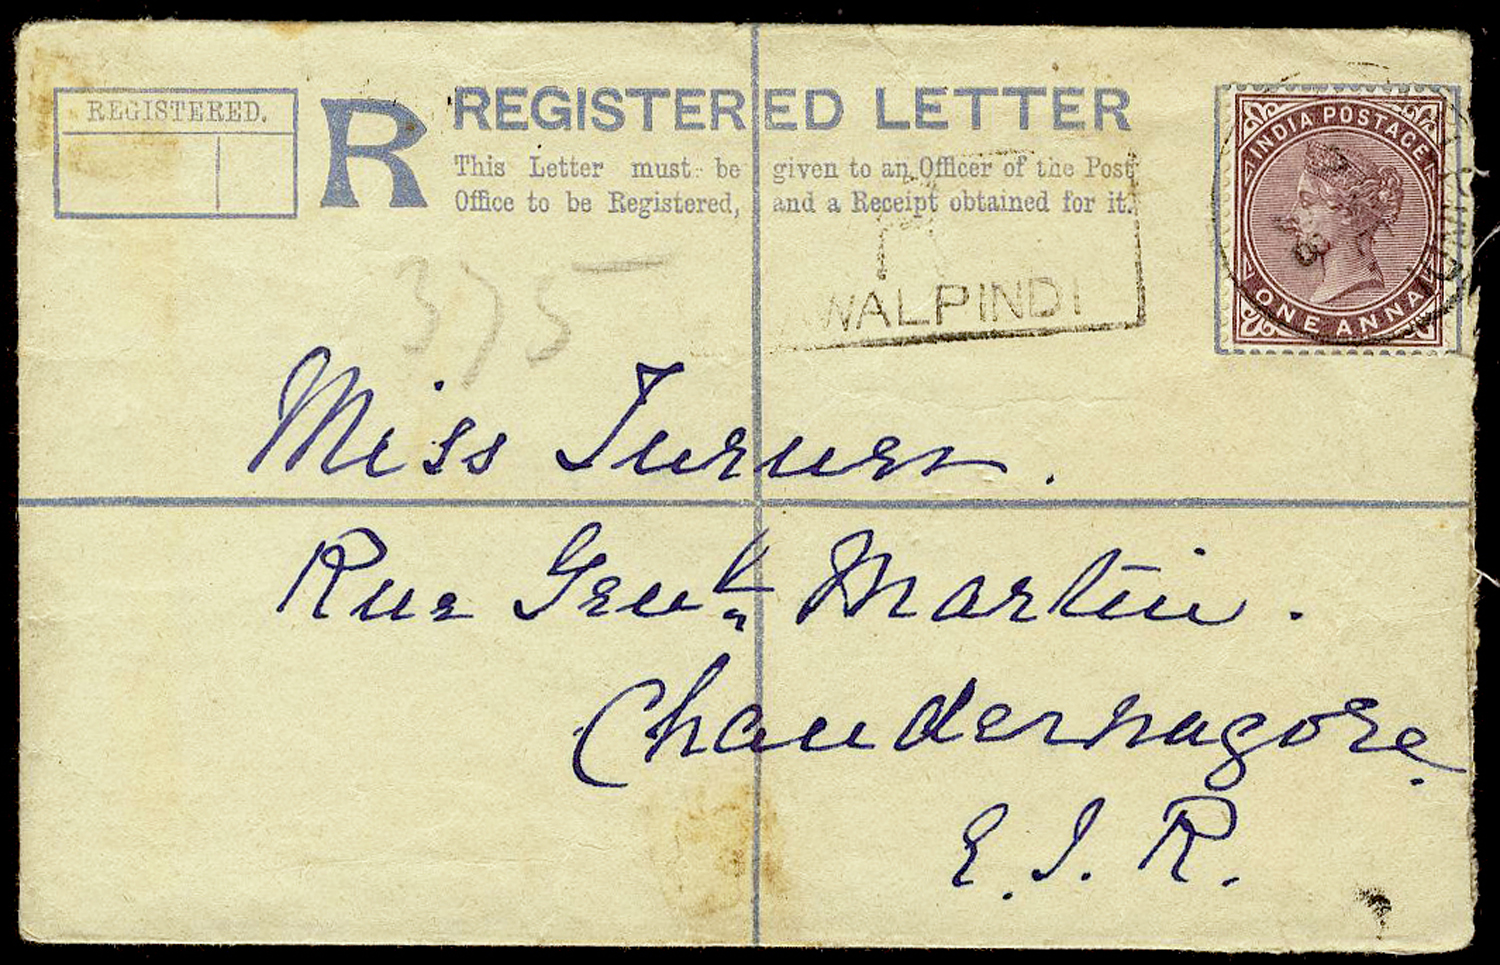 REGISTERED.
R
REGISTERED LETTER
This Letter must be given to an Officer of the Post
Office to be Registered, and a Receipt obtained for it.
INDIA POSTAGE
ONE ANNA
375
WALPINDI
Miss Turner.
Rue Genl. Martin.
Chandernagore.
E. I. R.